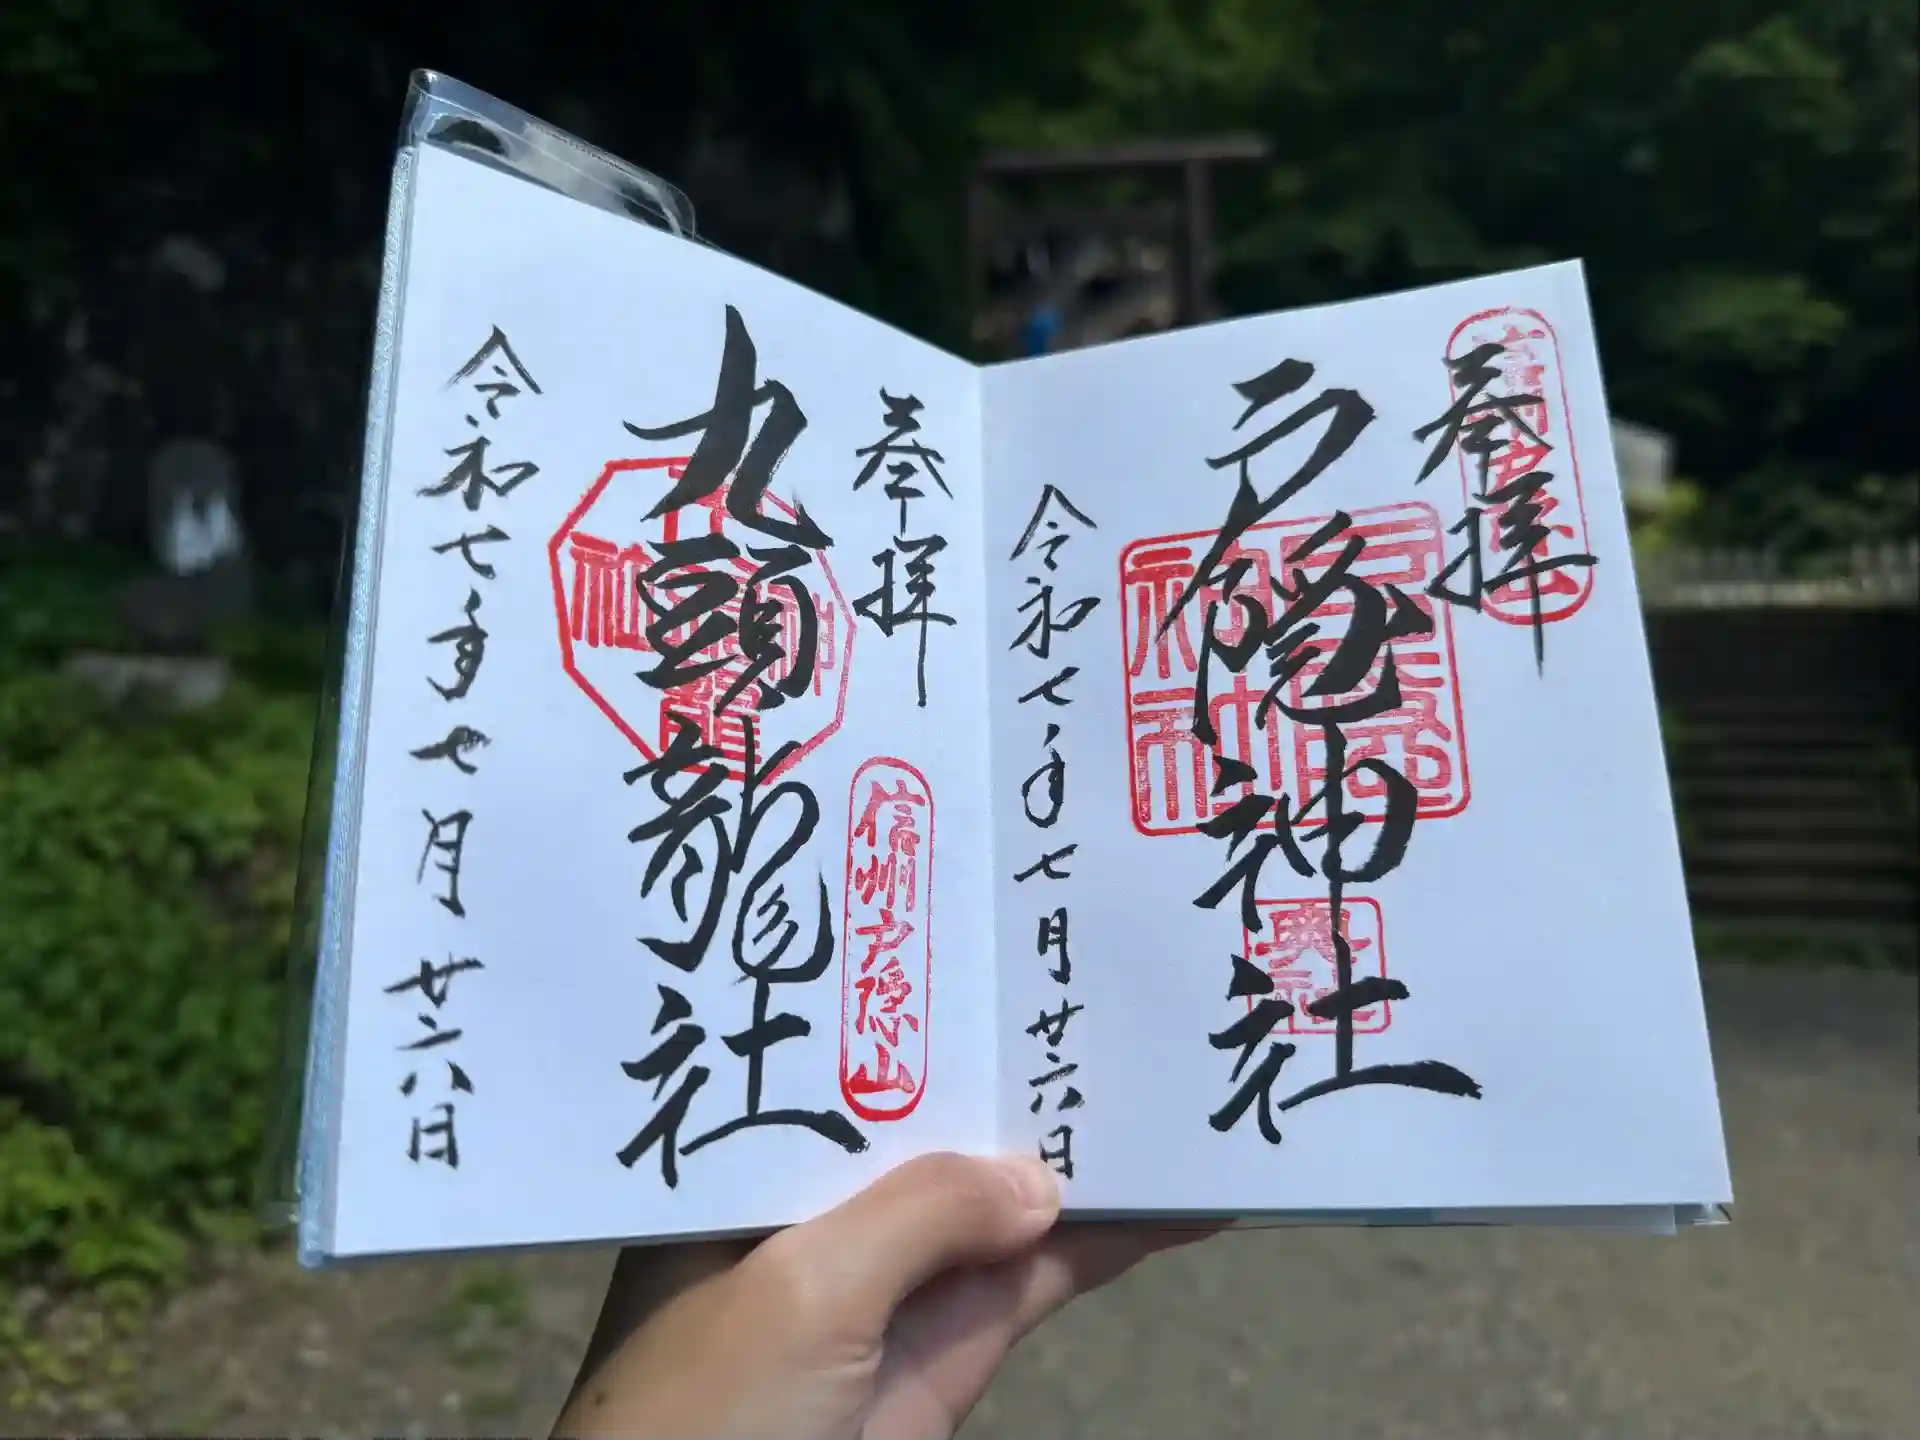 奉拝
信州戸隠山
戸隠神社
戸隠神社
奥社
令和七年七月廿六日
奉拝
信州戸隠山
九頭龍社
令和七年七月廿六日